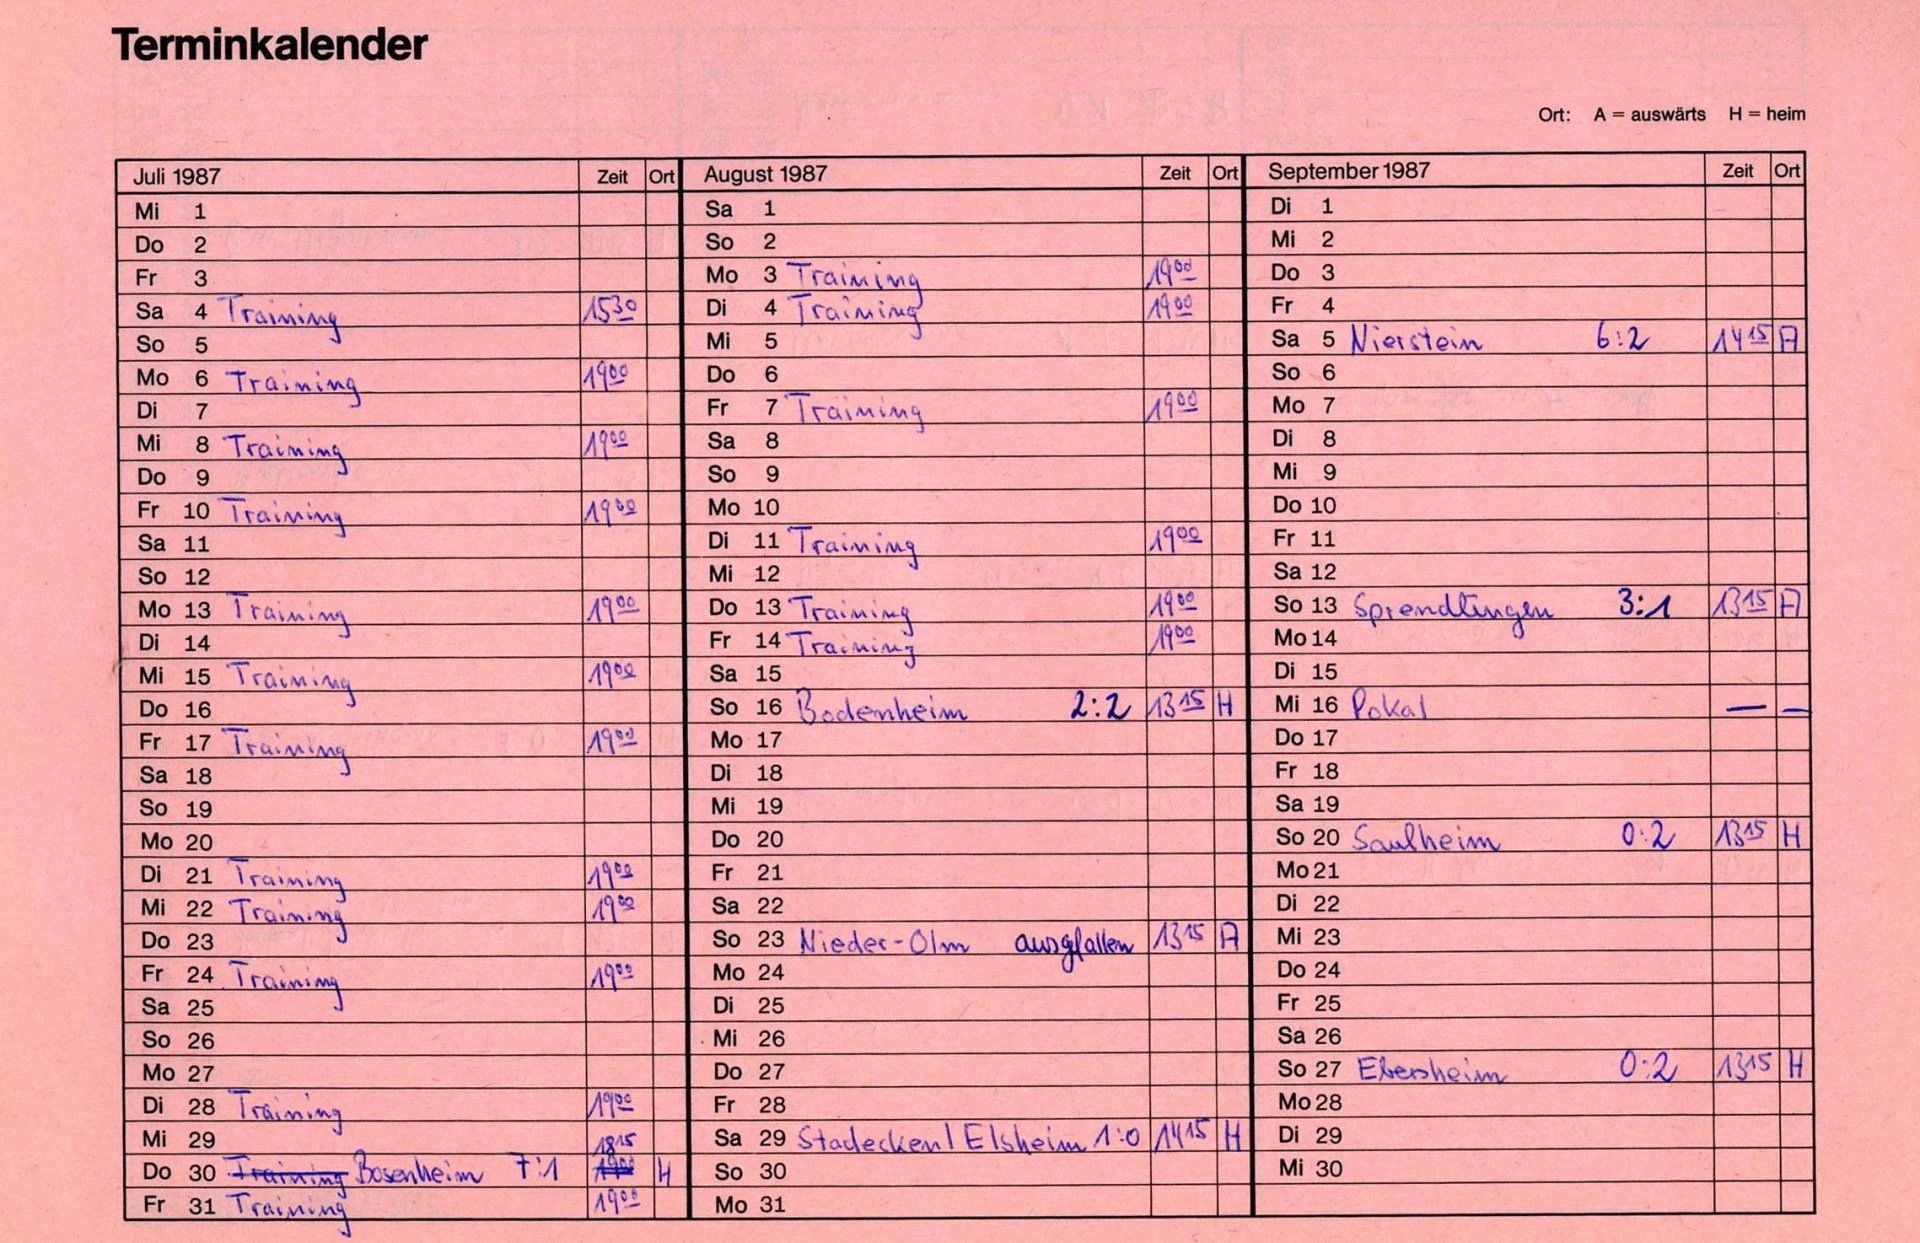 Terminkalender
Ort: A = auswärts H = heim
Juli 1987 Zeit Ort
Mi 1
Do 2
Fr 3
Sa 4 Training 15³⁰
So 5
Mo 6 Training 19⁰⁰
Di 7
Mi 8 Training 19⁰⁰
Do 9
Fr 10 Training 19⁰⁰
Sa 11
So 12
Mo 13 Training 19⁰⁰
Di 14
Mi 15 Training 19⁰⁰
Do 16
Fr 17 Training 19⁰⁰
Sa 18
So 19
Mo 20
Di 21 Training 19⁰⁰
Mi 22 Training 19⁰⁰
Do 23
Fr 24 Training 19⁰⁰
Sa 25
So 26
Mo 27
Di 28 Training 19⁰⁰
Mi 29
Do 30 Training Bosenheim 7:1 18¹⁵ 19⁰⁰ H
Fr 31 Training 19⁰⁰
August 1987 Zeit Ort
Sa 1
So 2
Mo 3 Training 19⁰⁰
Di 4 Training 19⁰⁰
Mi 5
Do 6
Fr 7 Training 19⁰⁰
Sa 8
So 9
Mo 10
Di 11 Training 19⁰⁰
Mi 12
Do 13 Training 19⁰⁰
Fr 14 Training 19⁰⁰
Sa 15
So 16 Bodenheim 2:2 13¹⁵ H
Mo 17
Di 18
Mi 19
Do 20
Fr 21
Sa 22
So 23 Nieder-Olm ausgfallen 13¹⁵ A
Mo 24
Di 25
Mi 26
Do 27
Fr 28
Sa 29 Stadecken/Elsheim 1:0 14¹⁵ H
So 30
Mo 31
September 1987 Zeit Ort
Di 1
Mi 2
Do 3
Fr 4
Sa 5 Nierstein 6:2 14¹⁵ A
So 6
Mo 7
Di 8
Mi 9
Do 10
Fr 11
Sa 12
So 13 Sprendlingen 3:1 13¹⁵ A
Mo 14
Di 15
Mi 16 Pokal — —
Do 17
Fr 18
Sa 19
So 20 Saulheim 0:2 13¹⁵ H
Mo 21
Di 22
Mi 23
Do 24
Fr 25
Sa 26
So 27 Ebersheim 0:2 13¹⁵ H
Mo 28
Di 29
Mi 30